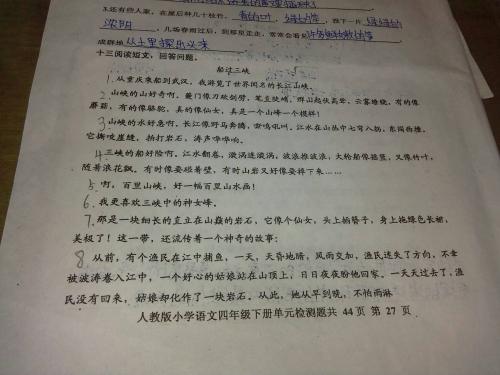 3.还有些人家，在屋后种几十枝竹，青的叶，绿的竿，投下一片绿绿的
浓阴，几场春雨过后，到那里走走，常常会看见许多鲜嫩的笋
成群地从土里探出头来
十三阅读短文，回答问题。
船过三峡
1.从重庆乘船到武汉，我游览了世界闻名的长江山峡。
2.山峡的山好奇啊。夔门像刀砍剑劈，笔直陡峭，群山起伏高耸，云雾缭绕，有的像
蘑菇，有的像骆驼，真的像仙女，真是一个山峰一个模样！
3.山峡的水好急啊。长江像野马奔腾，雷鸣吼叫，江水在山热中七弯八拐，东闯西撞，
它撕咬崖缝，拍打岩石，涛声哗哗响。
4.三峡的船好险啊。江水翻卷，漩涡连漩涡，波浪推波浪，大轮船像摇篮，又像竹叶，
随着浪花飘。有时像要碰着壁，有时山岩又好像要掉下来……
5.啊，百里山峡，好一幅百里山水画！
6.我更喜欢三峡中的神女峰。
7.那是一块细长的直立在山巅的岩石，它像个仙女，头上插簪子，身上拖绿色长裙，
美极了！这一带，还流传着一个神奇的故事：
8.从前，有个渔民在江中捕鱼，一天，天昏地暗，风雨交加，渔民迷失了方向，不幸
被波涛卷入江中，一个好心的姑娘站在山顶上，日日夜夜盼他回家。一天天过去了，渔
民没有回来，姑娘却化作了一块岩石。从此，她从早到晚，不怕雨淋
人教版小学语文四年级下册单元检测题共 44 页 第 27 页